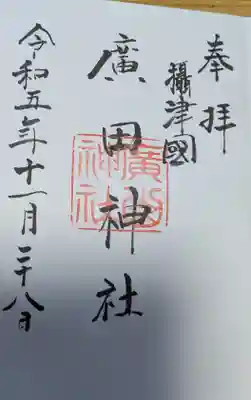 奉拝
攝津國
廣田神社
廣田神社
令和五年十一月二十八日